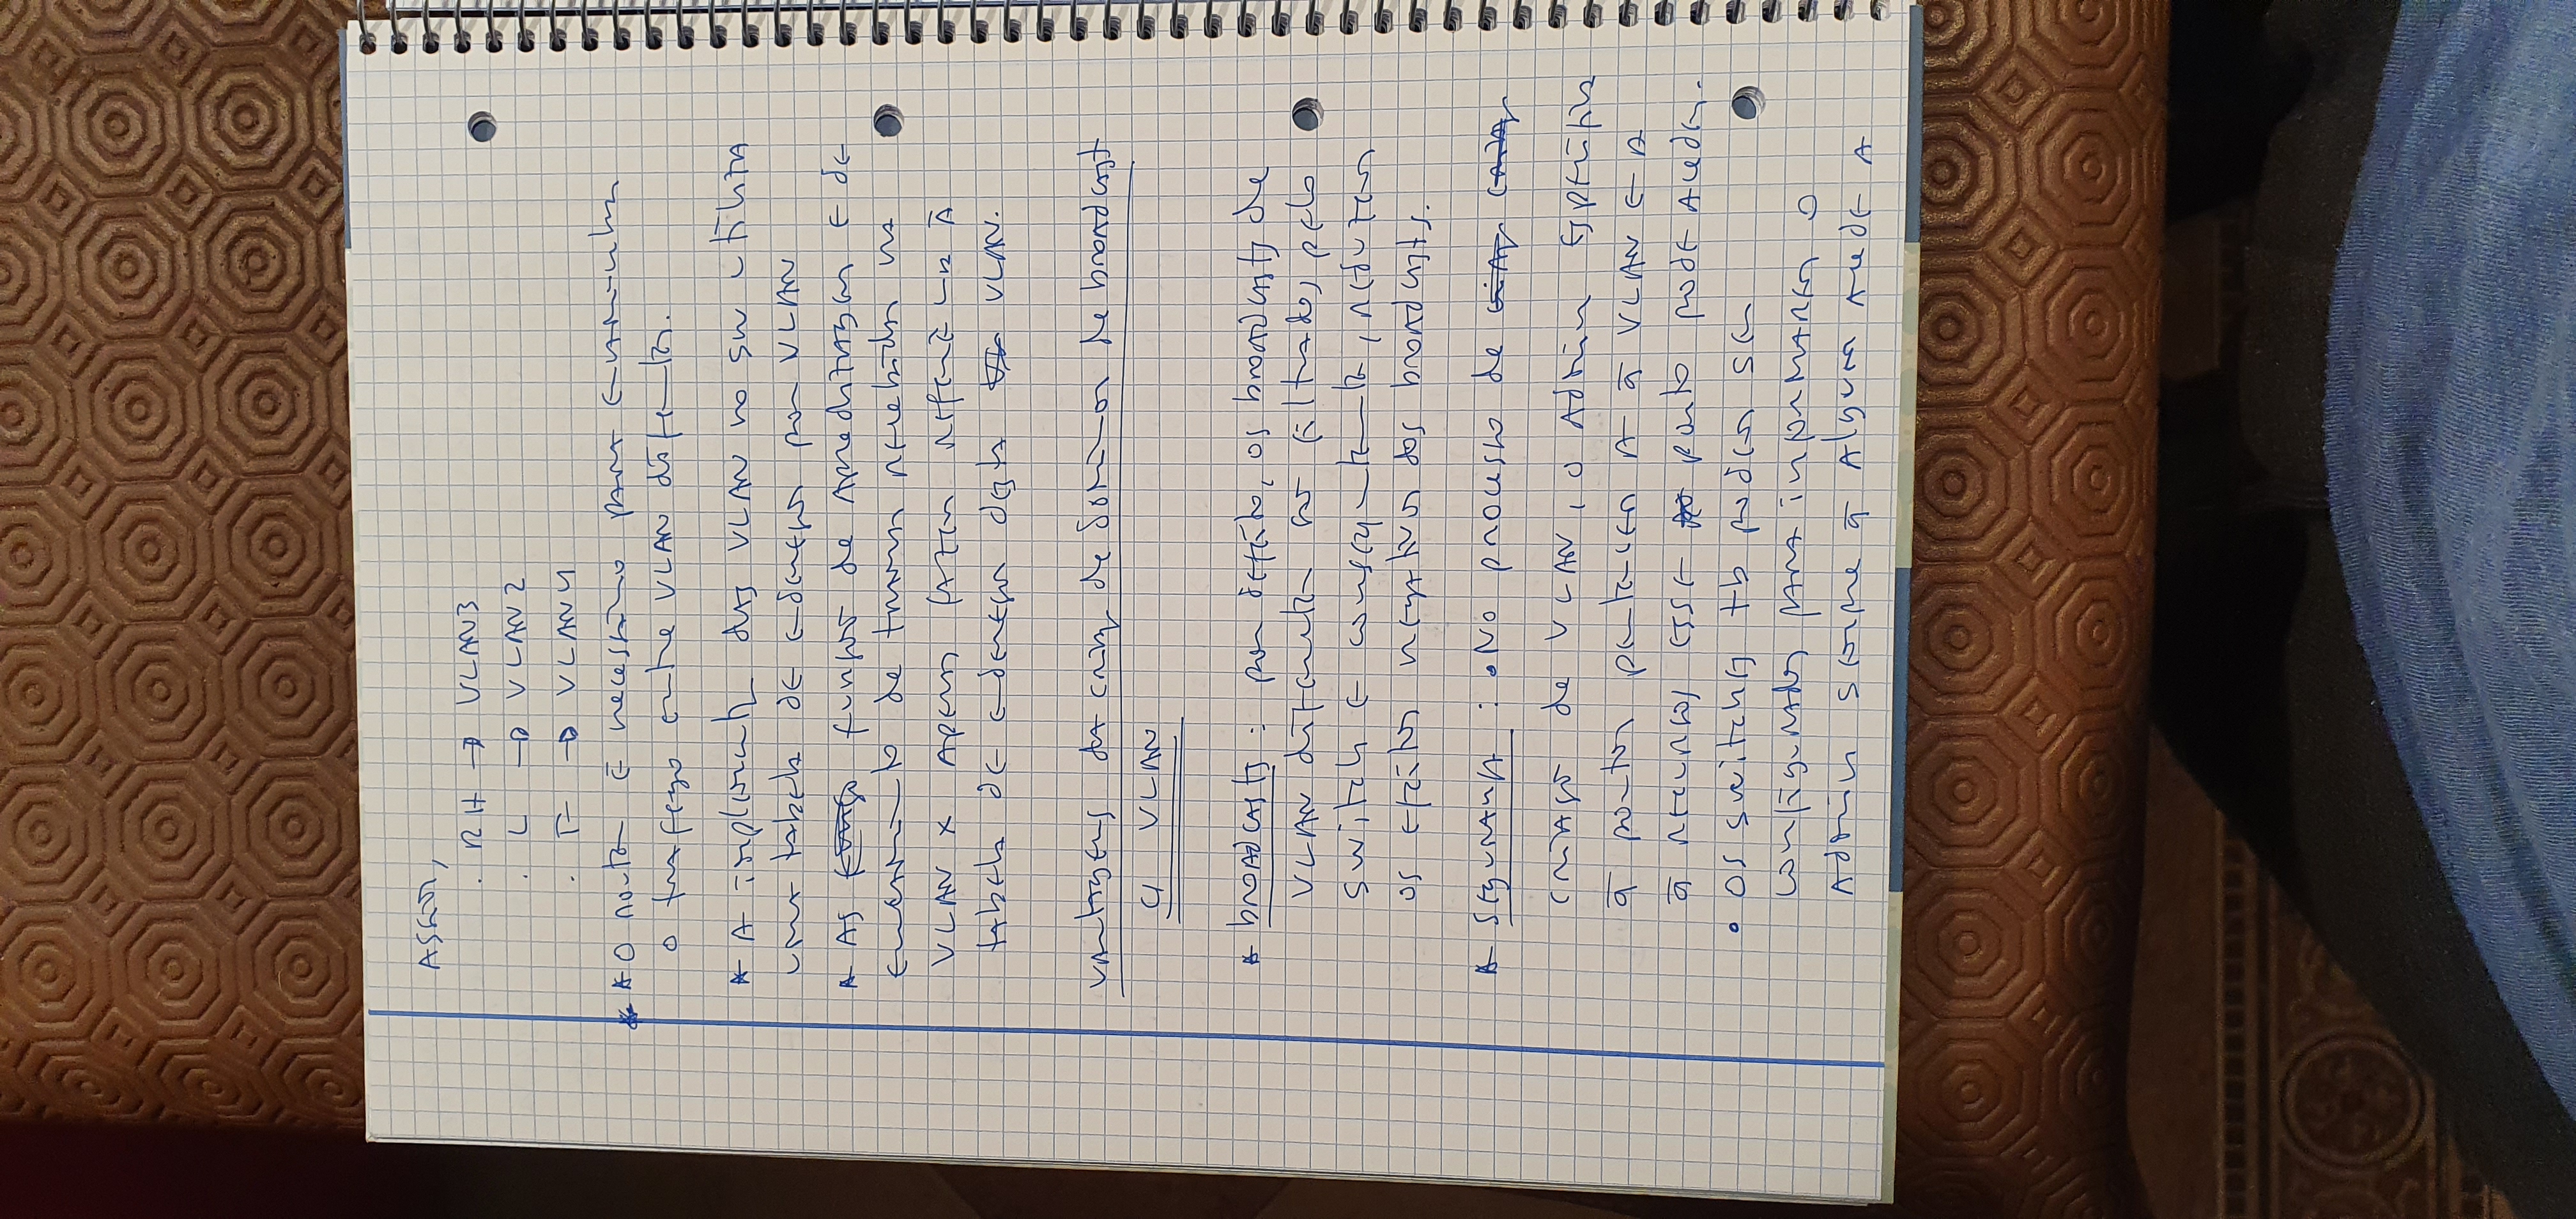 Assim,
. RH → VLAN3
. L → VLAN2
. F → VLAN4
* O router é necessário para encaminhar
o trafego entre VLAN diferentes.
* A implementação das VLAN no sw utiliza
uma tabela de endereços por VLAN
* As funções de aprendizagem e de
encaminhamento de tramas recebidas na
VLAN x apenas fazem referência à
tabela de endereços desta VLAN.
Vantagens da criação de domínios de broadcast
c/ VLAN
* broadcasts : por defeito, os broadcasts de
VLAN diferentes são filtrados pelo
switch e consequentemente, reduzem
os efeitos negativos dos broadcasts.
* Segurança : • No processo de
criação de VLAN, o Admin especifica
q̄ portos pertencem a q̄ VLAN e a
q̄ recursos esse porto pode aceder.
• Os switches tb podem ser
configurados para informarem o
Admin sempre q̄ alguem acede a